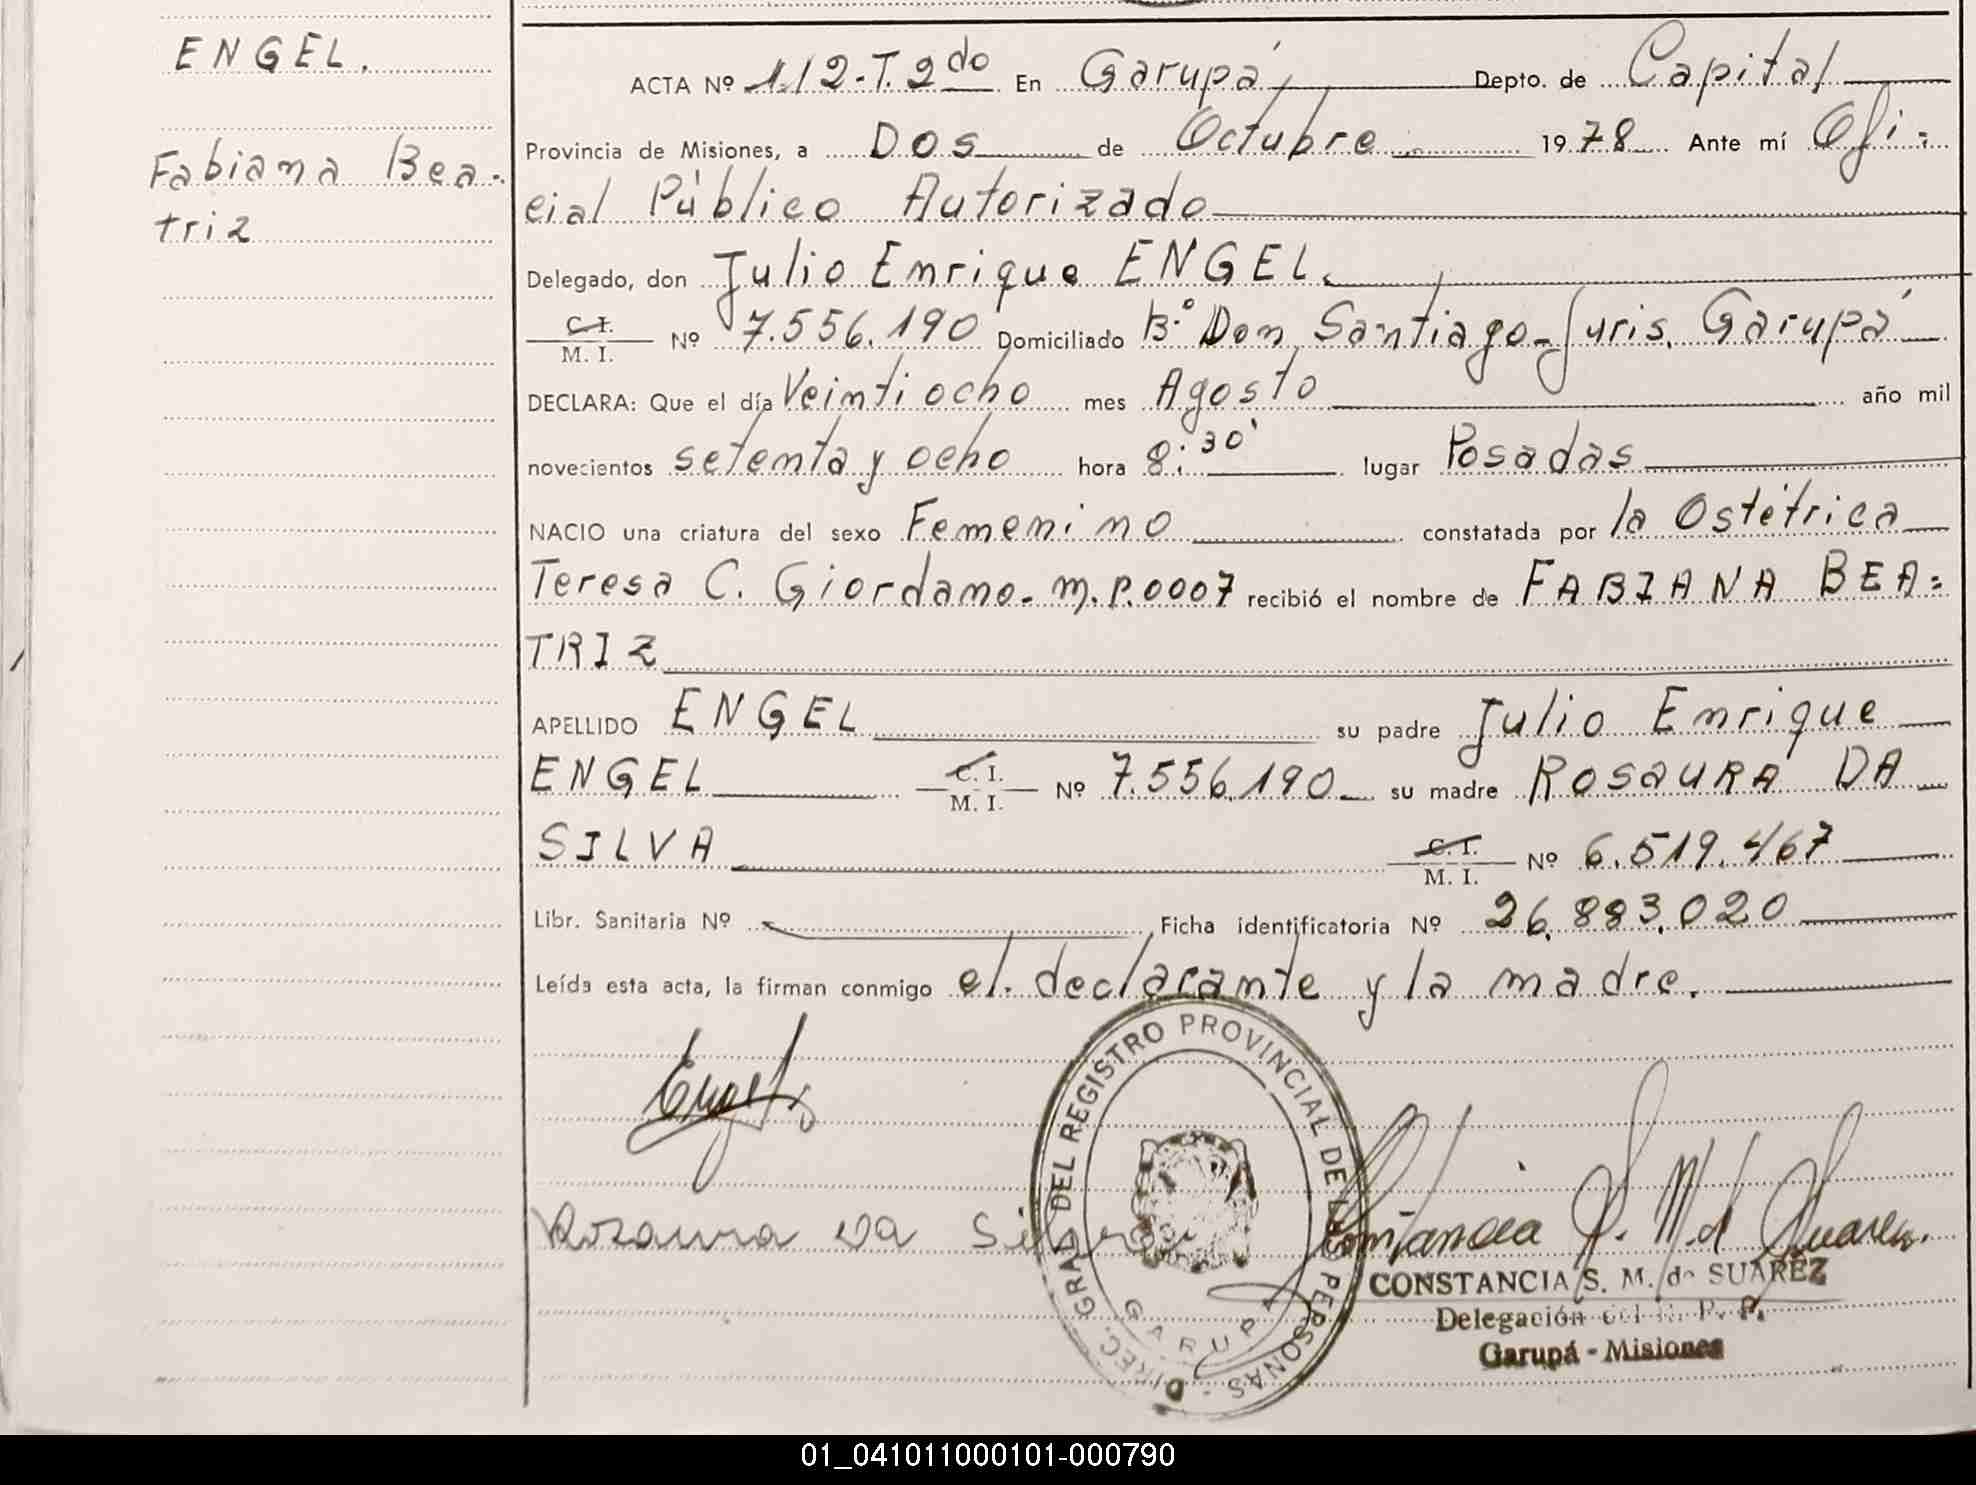 ENGEL.
Fabiana Bea-
triz
ACTA Nº 112-T.2do En Garupá Depto. de Capital
Provincia de Misiones, a DOS de Octubre 1978 Ante mí Ofi-
cial Público Autorizado
Delegado, don Julio Enrique ENGEL.
C. I.
M. I. Nº 7.556.190 Domiciliado Bº Don Santiago-Juris. Garupá
DECLARA: Que el día Veintiocho mes Agosto año mil
novecientos setenta y ocho hora 8:30' lugar Posadas
NACIO una criatura del sexo Femenino constatada por la Ostétrica
Teresa C. Giordano. M.P.0007 recibió el nombre de FABIANA BEA=
TRIZ
APELLIDO ENGEL su padre Julio Enrique
ENGEL C. I. M. I. Nº 7.556.190 su madre ROSAURA DA
SILVA C. I. M. I. Nº 6.519.467
Libr. Sanitaria Nº Ficha identificatoria Nº 26.883.020
Leída esta acta, la firman conmigo el declarante y la madre.
Engel
Rosaura Da Silva
DIREC. GRAL DEL REGISTRO PROVINCIAL DE LAS PERSONAS -
GARUPA
Constancia S. M. d Suarez.
CONSTANCIA S. M. de SUAREZ
Delegación del R. P. P.
Garupá - Misiones
01_041011000101-000790